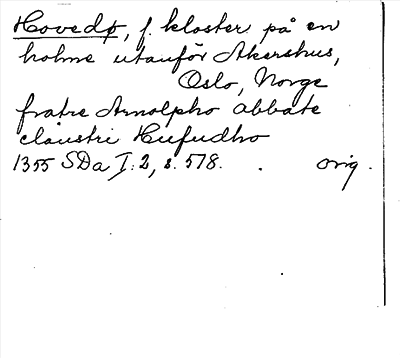 Hovedø, f. kloster på en
holme utanför Akershus,
Oslo, Norge
fratre Arnolpho abbate
claustri Hufudho
1355 SDa I: 2, s. 578. orig.